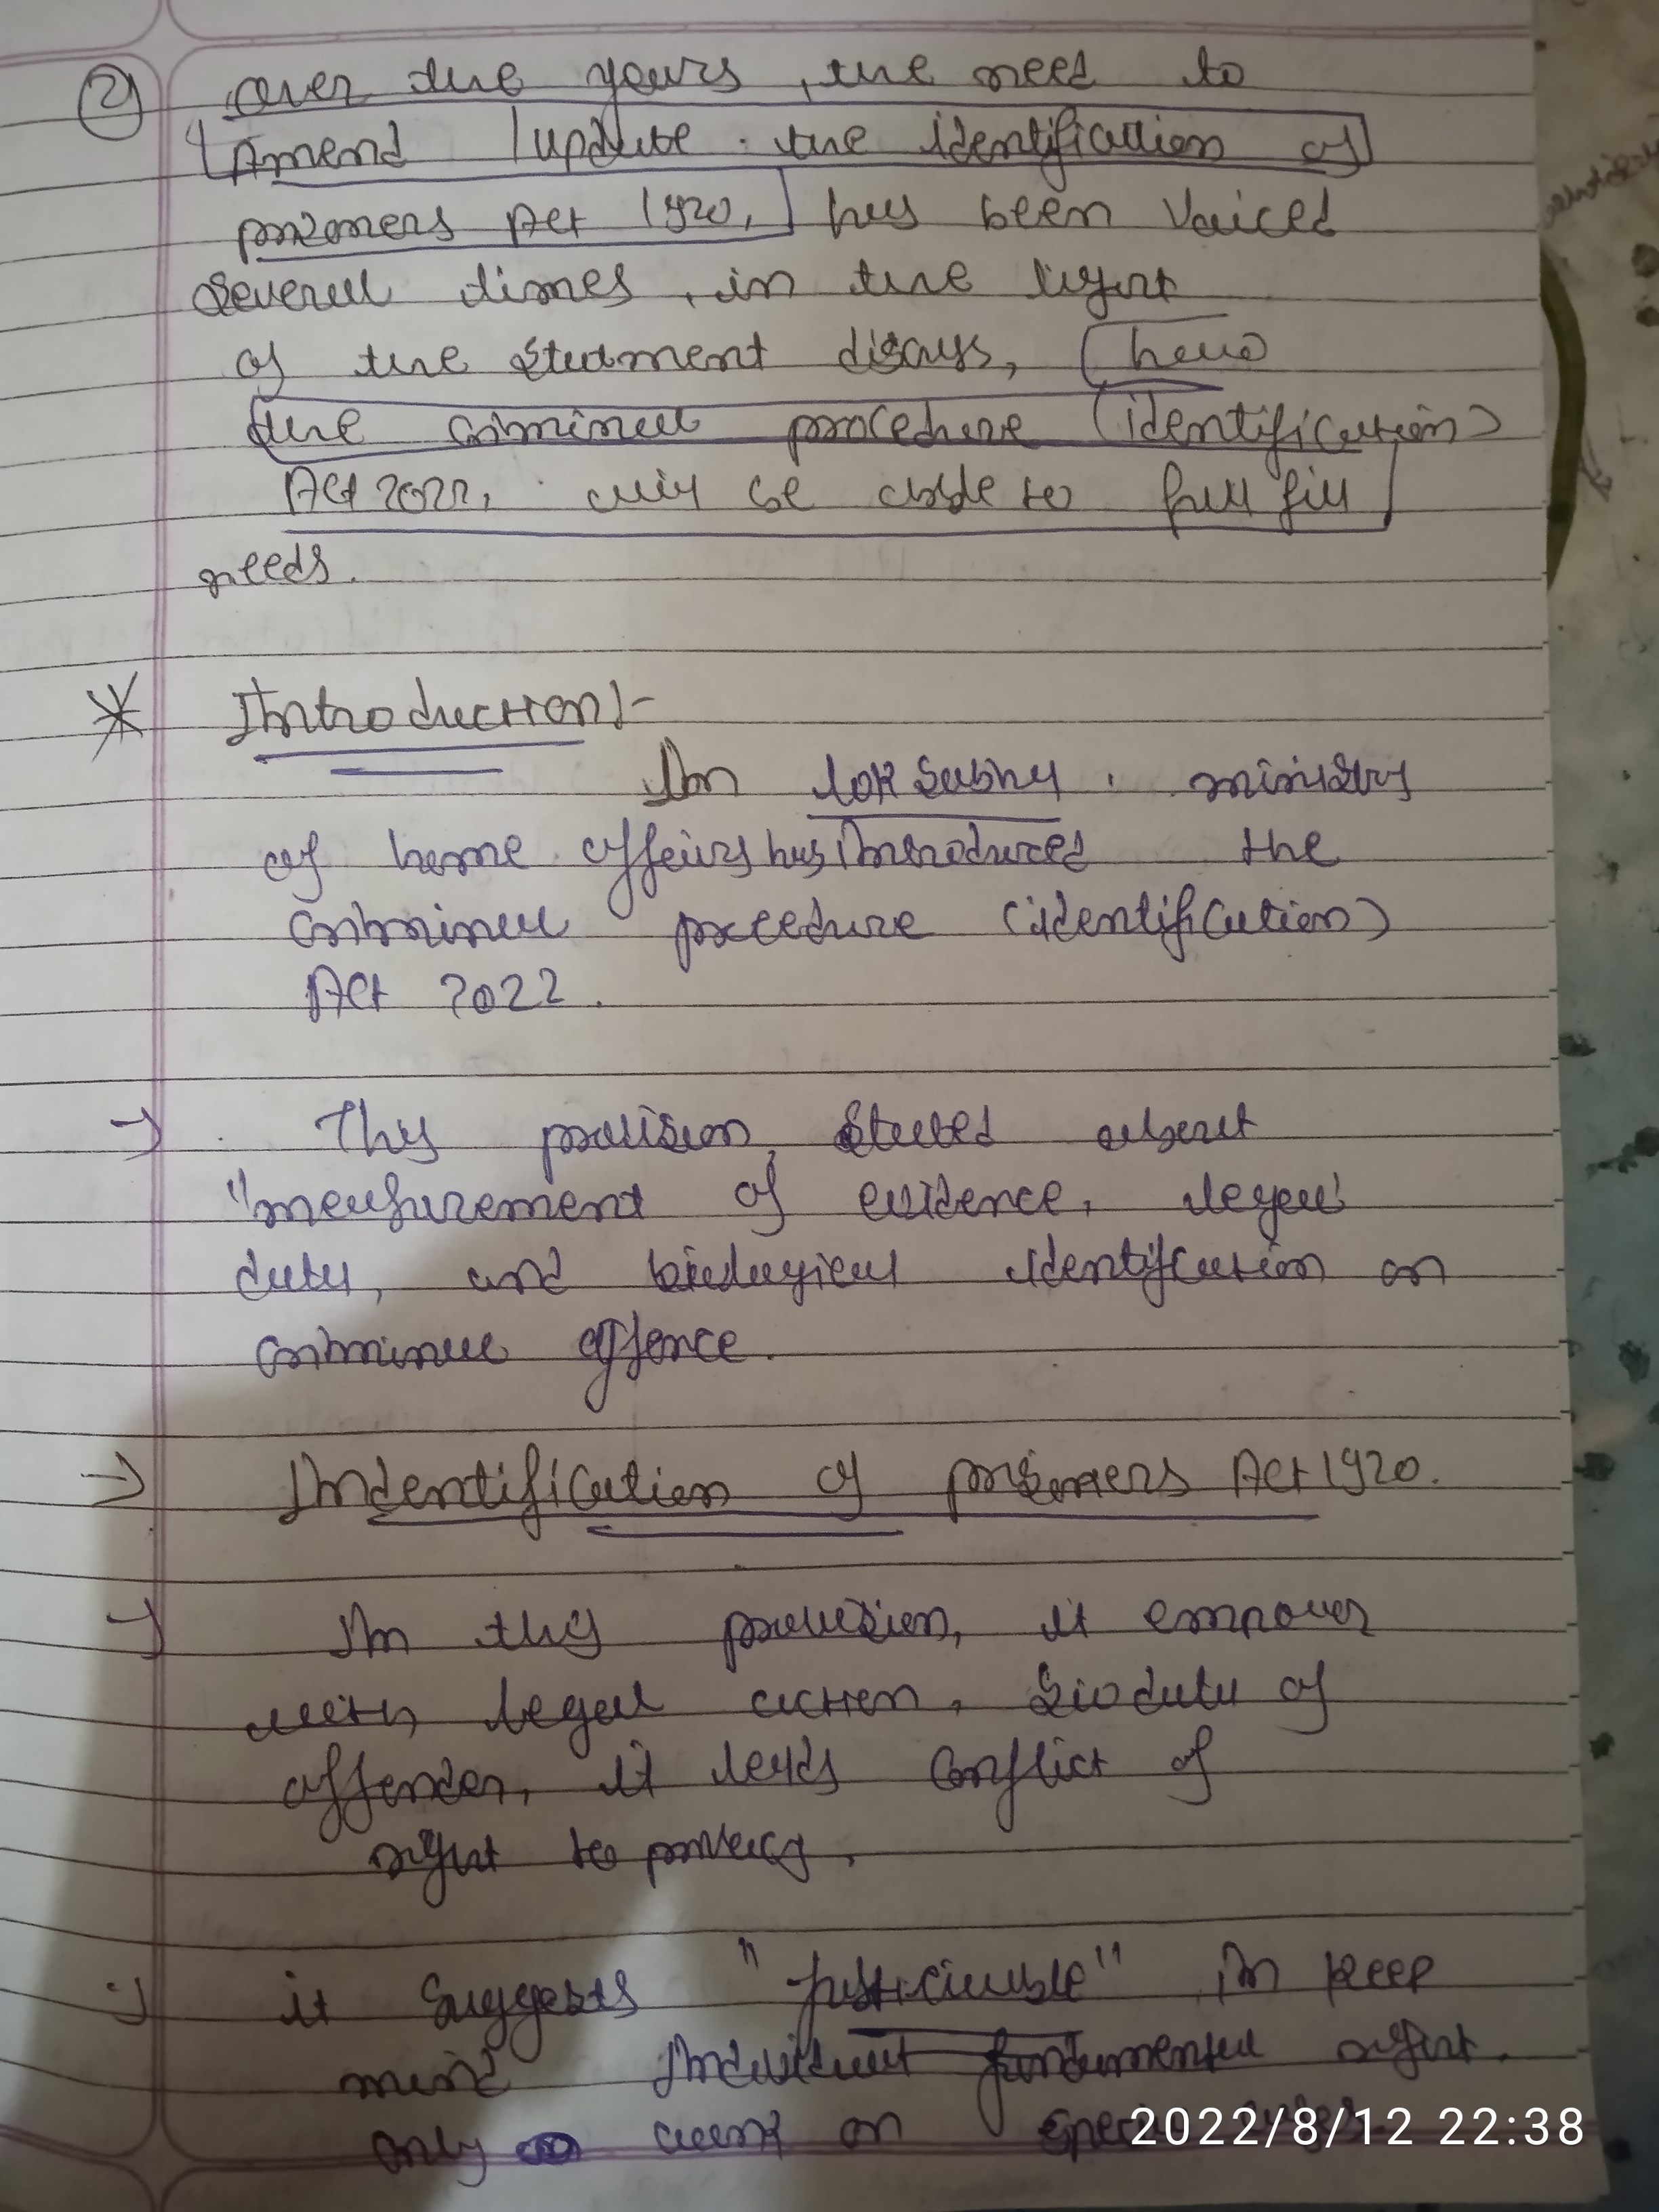 2) Over the years, the need to
Amend / update the identification of
prisoners Act 1920, has been voiced
several times, in the light
of the statment discuss, how
the criminal procedure (identification)
Act 2022, will be able to full fill
needs.
* Introduction:-
In lok sabha, ministry
of home affairs has Introduced the
criminal procedure (identification)
Act 2022.
→ This provision stated about
"measurement of evidence, legal
data, and biological identification on
criminal offence.
→ Indentification of prisoners Act 1920.
→ In this provision, it empower
with legal action, biodata of
offender, it leads conflict of
right to privacy.
→ it suggests "justiciable", in keep
mind Individual fundamental right.
only on
2022/8/12 22:38